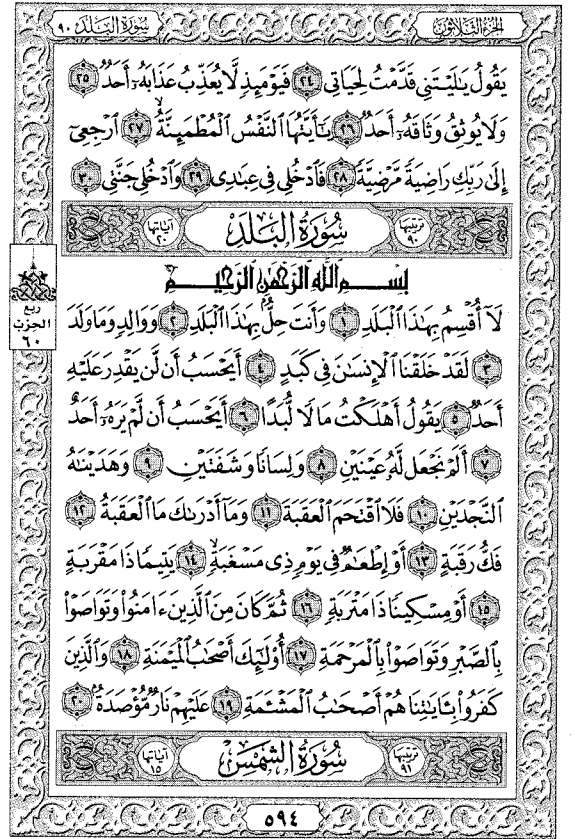 الجزء الثلاثون
سورة البلد ٩٠
يَقُولُ يَٰلَيۡتَنِي قَدَّمۡتُ لِحَيَاتِي ٢٤ فَيَوۡمَئِذٖ لَّا يُعَذِّبُ عَذَابَهُۥٓ أَحَدٞ ٢٥
وَلَا يُوثِقُ وَثَاقَهُۥٓ أَحَدٞ ٢٦ يَٰٓأَيَّتُهَا ٱلنَّفۡسُ ٱلۡمُطۡمَئِنَّةُ ٢٧ ٱرۡجِعِيٓ
إِلَىٰ رَبِّكِ رَاضِيَةٗ مَّرۡضِيَّةٗ ٢٨ فَٱدۡخُلِي فِي عِبَٰدِي ٢٩ وَٱدۡخُلِي جَنَّتِي ٣٠
ترتيبها ٩٠
سورة البلد
آياتها ٢٠
بِسۡمِ ٱللَّهِ ٱلرَّحۡمَٰنِ ٱلرَّحِيمِ
ربع
الحزب
٦٠
لَآ أُقۡسِمُ بِهَٰذَا ٱلۡبَلَدِ ١ وَأَنتَ حِلُّۢ بِهَٰذَا ٱلۡبَلَدِ ٢ وَوَالِدٖ وَمَا وَلَدَ
٣ لَقَدۡ خَلَقۡنَا ٱلۡإِنسَٰنَ فِي كَبَدٍ ٤ أَيَحۡسَبُ أَن لَّن يَقۡدِرَ عَلَيۡهِ
أَحَدٞ ٥ يَقُولُ أَهۡلَكۡتُ مَالٗا لُّبَدًا ٦ أَيَحۡسَبُ أَن لَّمۡ يَرَهُۥٓ أَحَدٌ
٧ أَلَمۡ نَجۡعَل لَّهُۥ عَيۡنَيۡنِ ٨ وَلِسَانٗا وَشَفَتَيۡنِ ٩ وَهَدَيۡنَٰهُ
ٱلنَّجۡدَيۡنِ ١٠ فَلَا ٱقۡتَحَمَ ٱلۡعَقَبَةَ ١١ وَمَآ أَدۡرَىٰكَ مَا ٱلۡعَقَبَةُ ١٢
فَكُّ رَقَبَةٍ ١٣ أَوۡ إِطۡعَٰمٞ فِي يَوۡمٖ ذِي مَسۡغَبَةٖ ١٤ يَتِيمٗا ذَا مَقۡرَبَةٍ
١٥ أَوۡ مِسۡكِينٗا ذَا مَتۡرَبَةٖ ١٦ ثُمَّ كَانَ مِنَ ٱلَّذِينَ ءَامَنُواْ وَتَوَاصَوۡاْ
بِٱلصَّبۡرِ وَتَوَاصَوۡاْ بِٱلۡمَرۡحَمَةِ ١٧ أُوْلَٰٓئِكَ أَصۡحَٰبُ ٱلۡمَيۡمَنَةِ ١٨ وَٱلَّذِينَ
كَفَرُواْ بِـَٔايَٰتِنَا هُمۡ أَصۡحَٰبُ ٱلۡمَشۡـَٔمَةِ ١٩ عَلَيۡهِمۡ نَارٞ مُّؤۡصَدَةُۢ ٢٠
ترتيبها ٩١
سورة الشمس
آياتها ١٥
٥٩٤